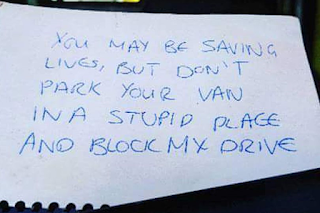 YOU MAY BE SAVING
LIVES, BUT DON'T
PARK YOUR VAN
IN A STUPID PLACE
AND BLOCK MY DRIVE